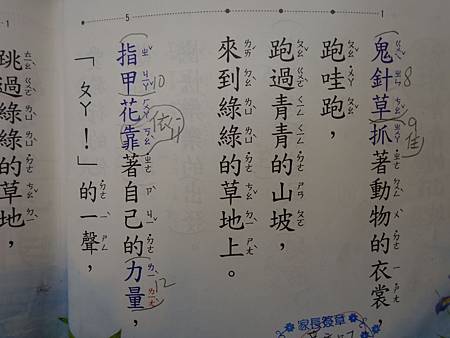 鬼針草抓著動物的衣裳，
跑哇跑，
跑過青青的山坡，
來到綠綠的草地上。
指甲花靠著自己的力量，
「ㄆㄚ！」的一聲，
跳過綠綠的草地，
1
5
8
9
佳
10
依
12
家長簽章